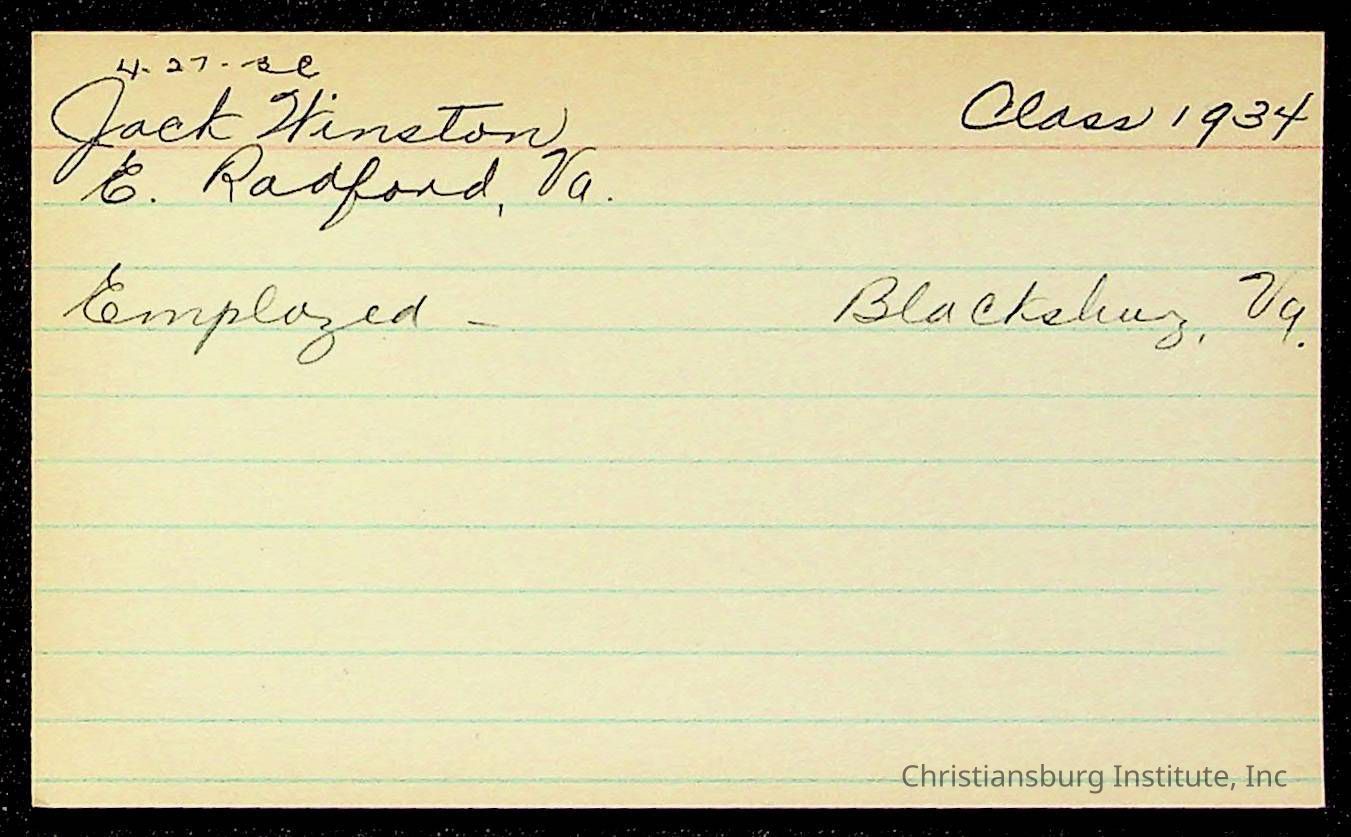 4-27-
Jack Winston Class 1934
E. Radford, Va.
Employed - Blacksburg, Va.
Christiansburg Institute, Inc